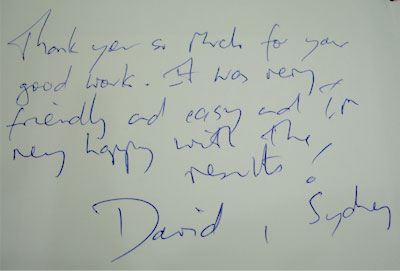 Thank you so Much for your
good work. It was very
friendly and easy and I'm
very happy with the
results!
David, Sydney